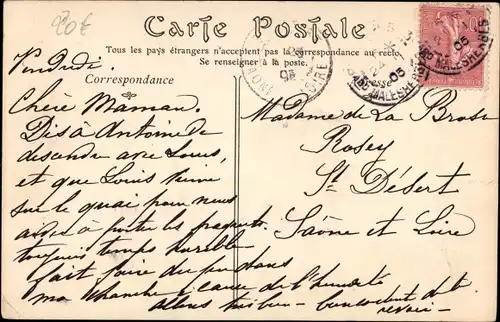 20€
Carte Postale
Tous les pays étrangers n'acceptent pas la correspondance au recto
Se renseigner à la poste.
Correspondance
Vendredi.
Chère Maman.
Dis à Antoine de
descendre avec Louis,
et que Louis vienne
sur le quai pour nous
aider à porter les paquets
toujours temps horrible
fait faire du feu dans
ma chambre à cause de l'humidité
allons très bien - bien content de te
revoir -
Madame de La Brosse
Rosey
St Désert
Saône et Loire
05
BD MALESHERBES